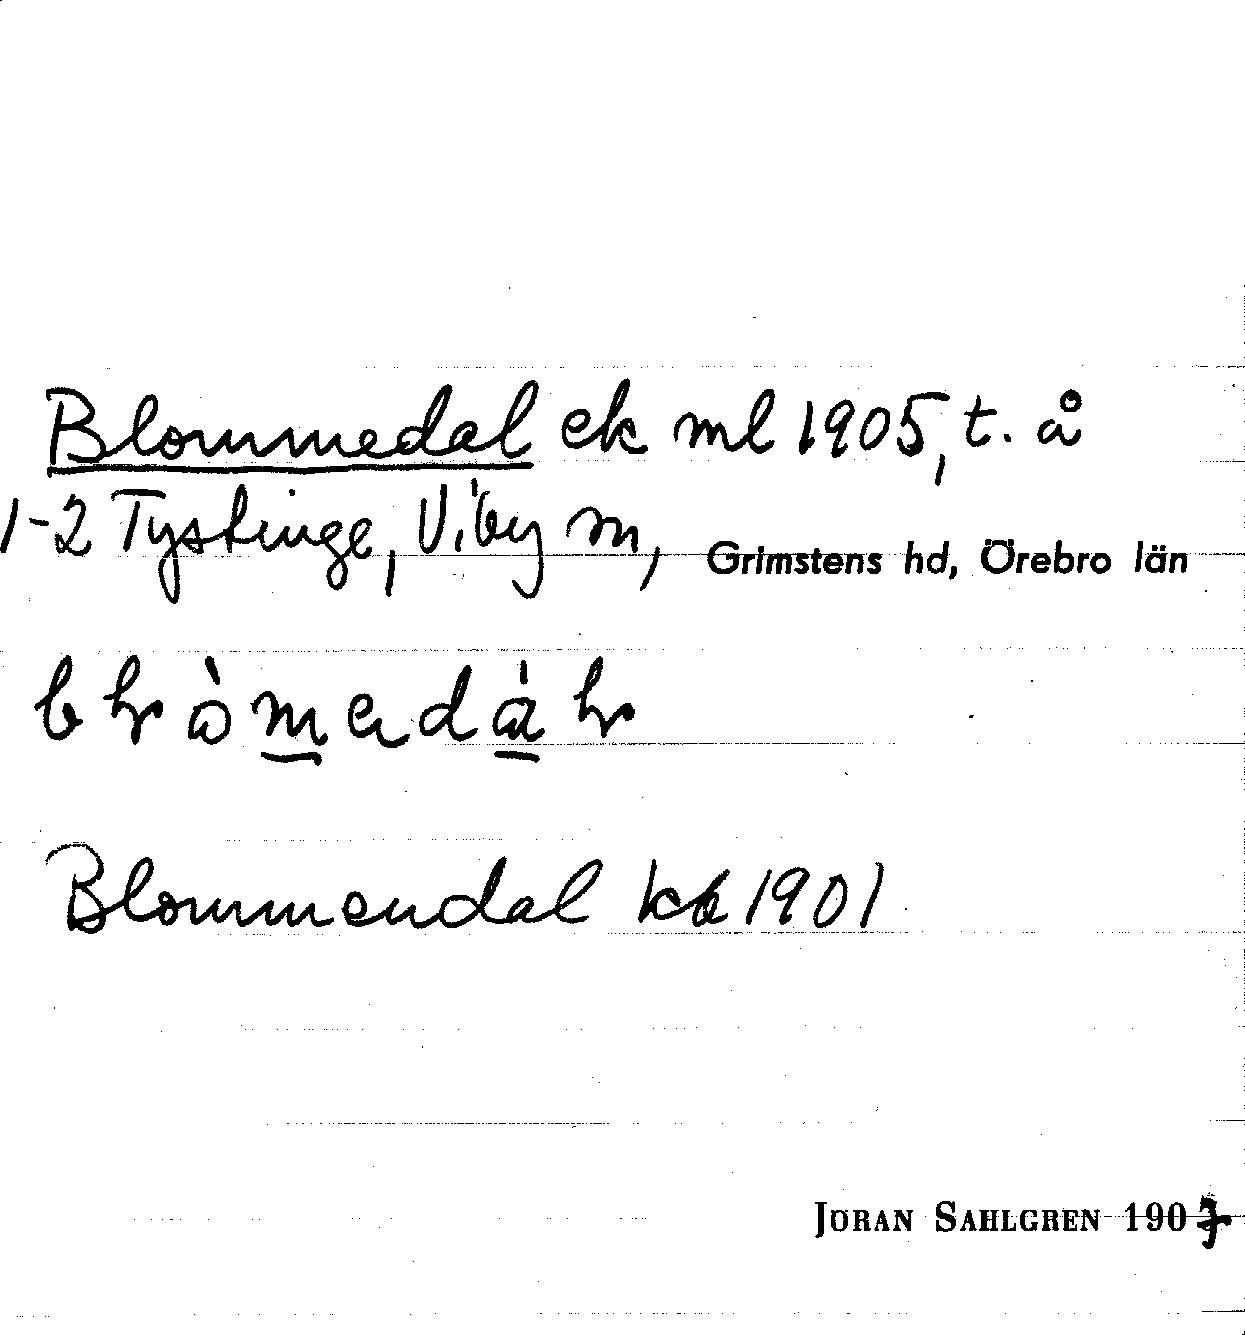 Blommedal ek ml 1905, t. å
1-2 Tystinge, Viby sn, Grimstens hd, Örebro län
Blommendal kb 1901
JÖRAN SAHLGREN 1907